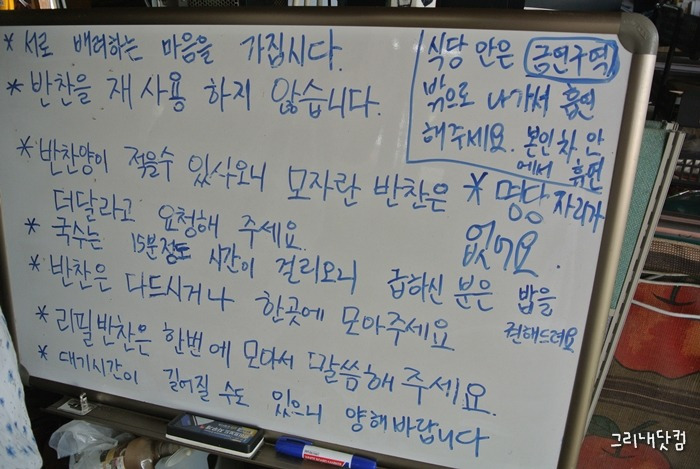 * 서로 배려하는 마음을 가집시다.
* 반찬을 재사용 하지 않습니다.
식당 안은 금연구역
밖으로 나가서 흡연
해주세요. 본인차 안
에서 흡연
* 반찬양이 적을수 있사오니 모자란 반찬은
더달라고 요청해 주세요.
* 명당 자리가
없어요.
* 국수는 15분정도 시간이 걸리오니 급하신 분은 밥을
권해드려요
* 반찬은 다드시거나 한곳에 모아주세요
* 리필반찬은 한번에 모아서 말씀해 주세요.
* 대기시간이 길어질 수도 있으니 양해바랍니다
그리내닷컴